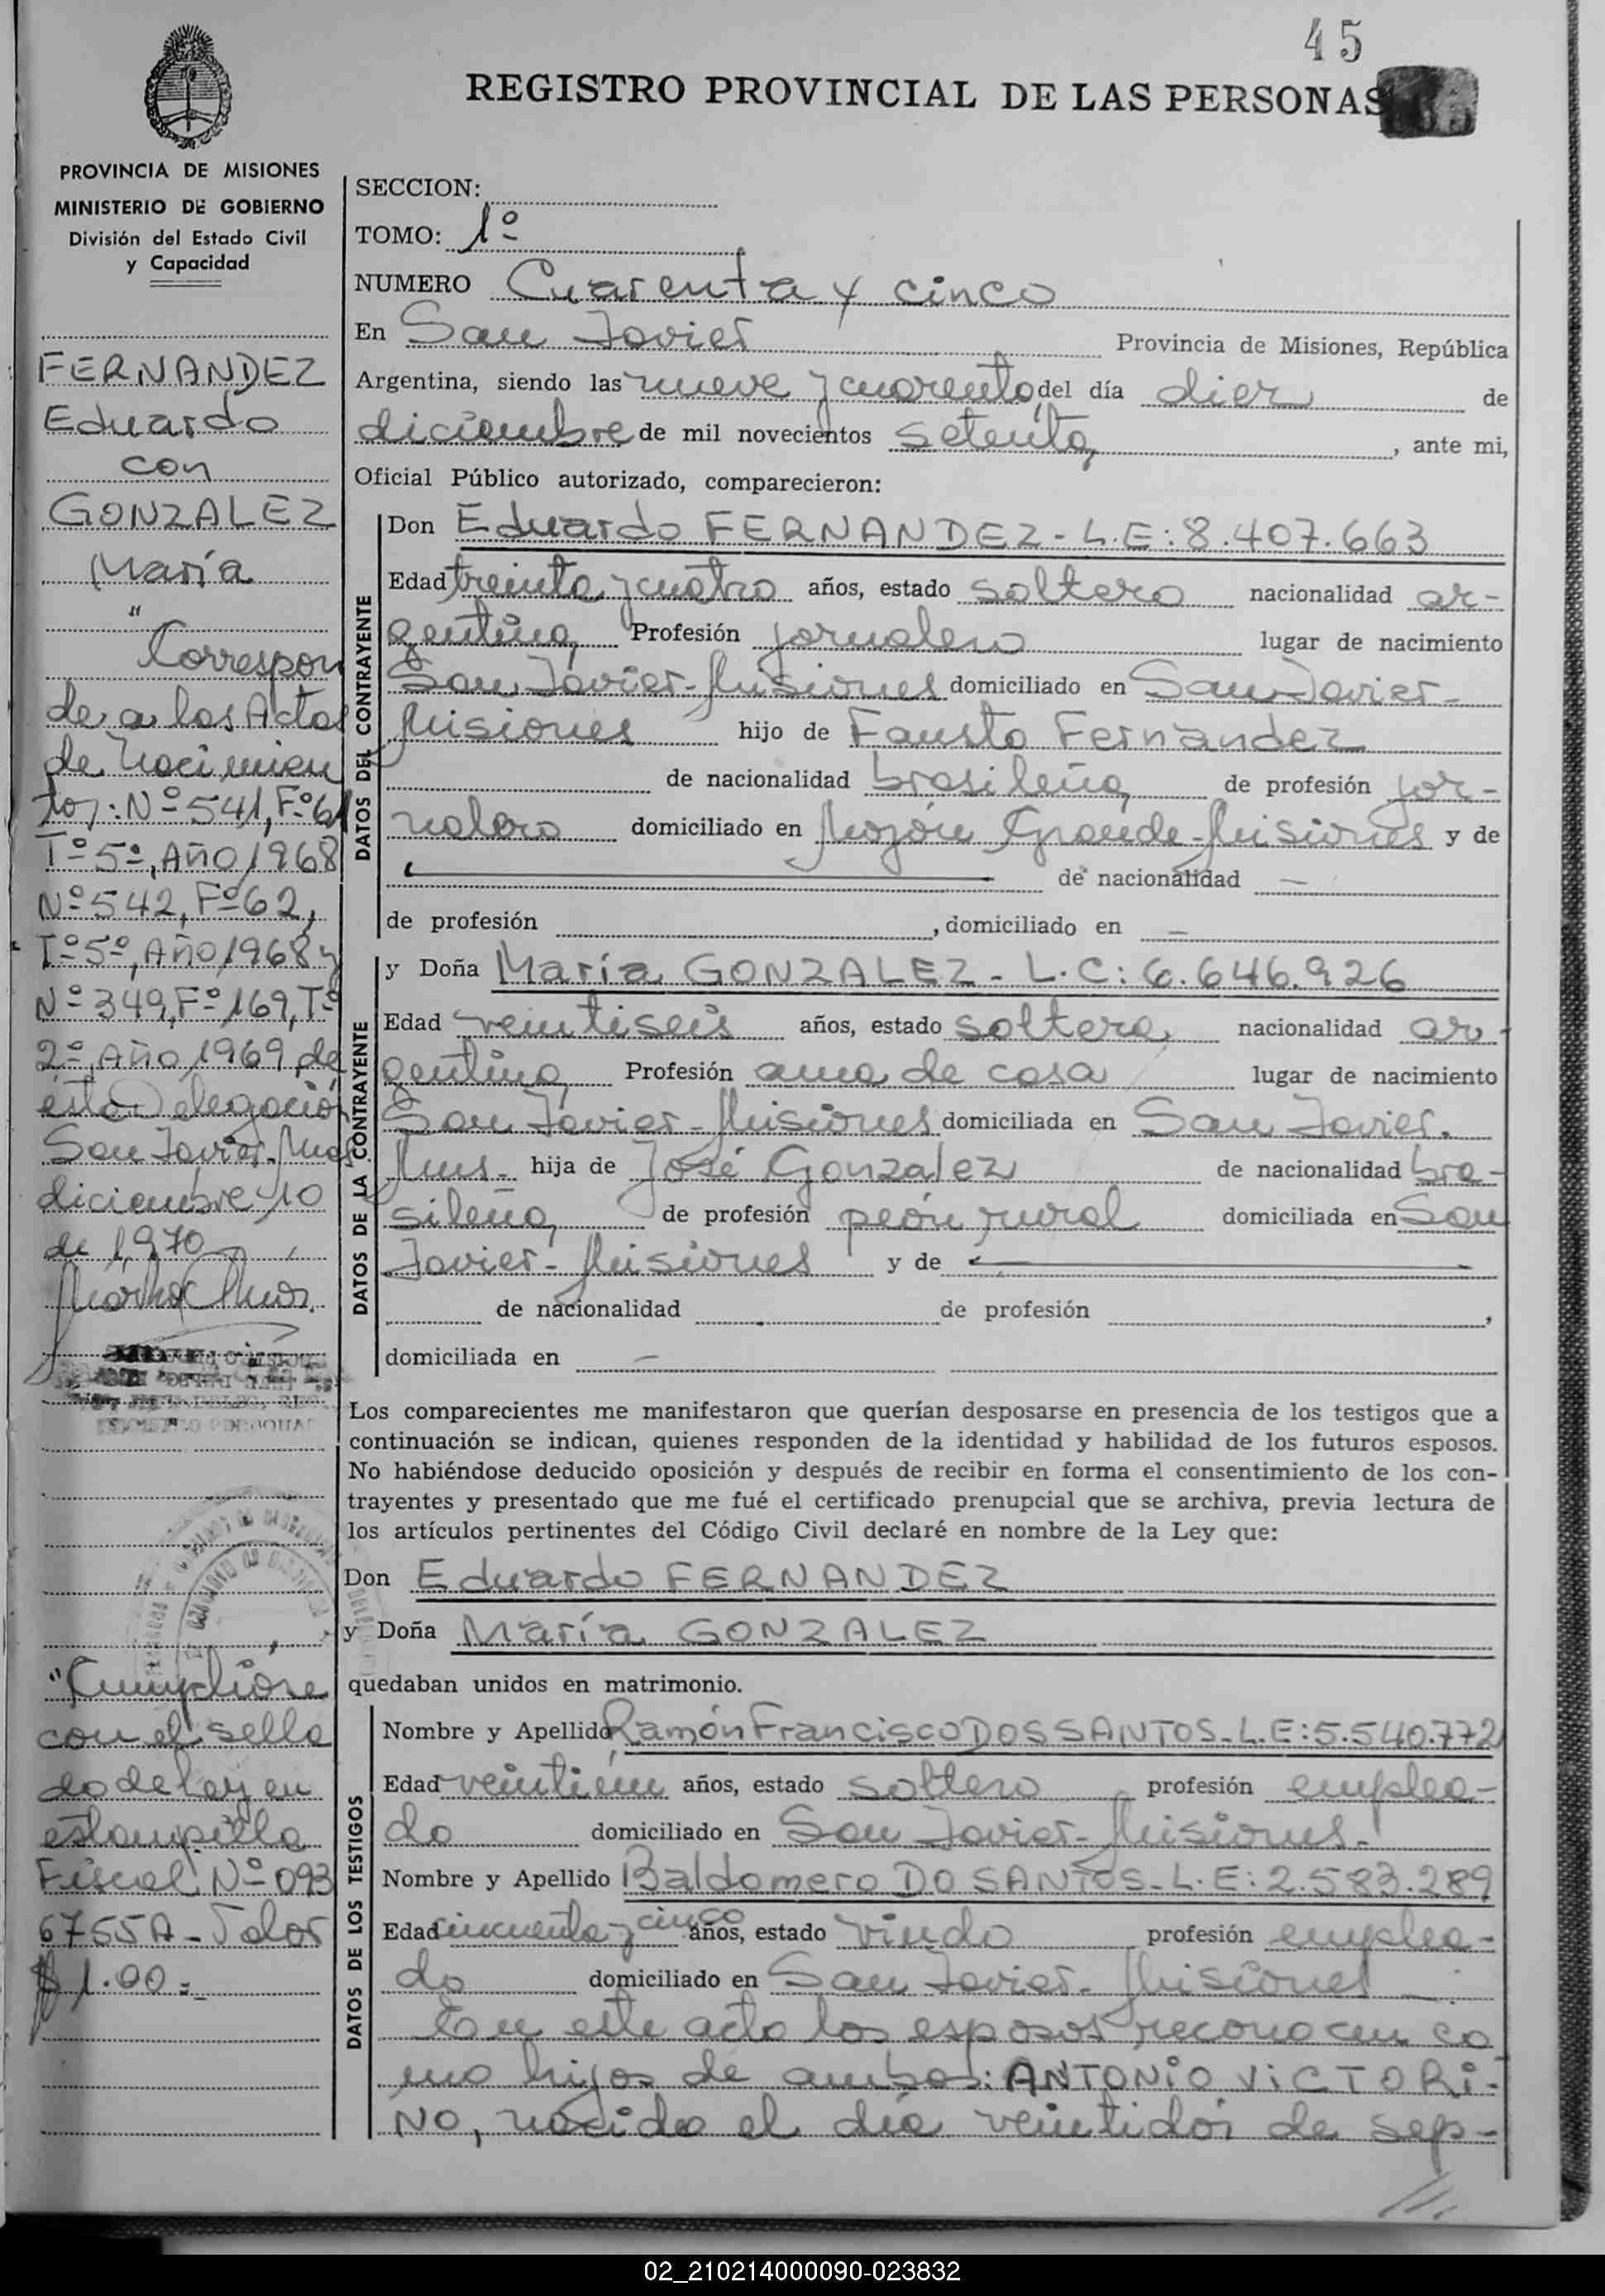 45
REGISTRO PROVINCIAL DE LAS PERSONAS
PROVINCIA DE MISIONES
MINISTERIO DE GOBIERNO
División del Estado Civil
y Capacidad
FERNANDEZ
Eduardo
con
GONZALEZ
María
"
"Correspon
de a las Actas
de Nacimien
tos: Nº 541, Fº 61
Tº 5º, Año 1968
Nº 542, Fº 62,
Tº 5º, Año 1968 y
Nº 349, Fº 169, Tº
2º, Año 1969, de
esta Delegación
San Javier, Mnes
diciembre 10
de 1970
"Cumplióse
con el sella
do de Ley en
estampilla
Fiscal Nº 093
6755A - Valor
$ 1.00=
SECCION:
TOMO: 1º
NUMERO Cuarenta y cinco
En San Javier Provincia de Misiones, República
Argentina, siendo las nueve y cuarenta, del día diez de
diciembre de mil novecientos setenta, ante mi,
Oficial Público autorizado, comparecieron:
DATOS DEL CONTRAYENTE
Don Eduardo FERNANDEZ - L.E: 8.407.663
Edad treinta y cuatro años, estado soltero nacionalidad ar-
gentina Profesión jornalero lugar de nacimiento
San Javier - Misiones domiciliado en San Javier -
Misiones hijo de Fausto Fernandez
de nacionalidad brasileña de profesión jor-
nalero domiciliado en Mojón Grande - Misiones y de
— de nacionalidad —
de profesión , domiciliado en —
DATOS DE LA CONTRAYENTE
y Doña María GONZALEZ - L.C: 6.646.926
Edad veintiseis años, estado soltera nacionalidad ar-
gentina Profesión ama de casa lugar de nacimiento
San Javier - Misiones domiciliada en San Javier.
Mnes - hija de José Gonzalez de nacionalidad bra-
sileña de profesión peón rural domiciliada en San
Javier - Misiones y de —
de nacionalidad de profesión ,
domiciliada en —
Los comparecientes me manifestaron que querían desposarse en presencia de los testigos que a
continuación se indican, quienes responden de la identidad y habilidad de los futuros esposos.
No habiéndose deducido oposición y después de recibir en forma el consentimiento de los con-
trayentes y presentado que me fué el certificado prenupcial que se archiva, previa lectura de
los artículos pertinentes del Código Civil declaré en nombre de la Ley que:
Don Eduardo FERNANDEZ
y Doña María GONZALEZ
quedaban unidos en matrimonio.
DATOS DE LOS TESTIGOS
Nombre y Apellido Ramón Francisco DOS SANTOS - L.E: 5.540.772
Edad veintiún años, estado soltero profesión emplea-
do domiciliado en San Javier - Misiones.
Nombre y Apellido Baldomero DO SANTOS - L.E: 2.583.289
Edad cincuenta y cinco años, estado viudo profesión emplea-
do domiciliado en San Javier - Misiones
En este acto los esposos reconocen co
mo hijos de ambos: ANTONIO VICTORI-
NO, nacido el día veintidós de sep-
02_210214000090-023832